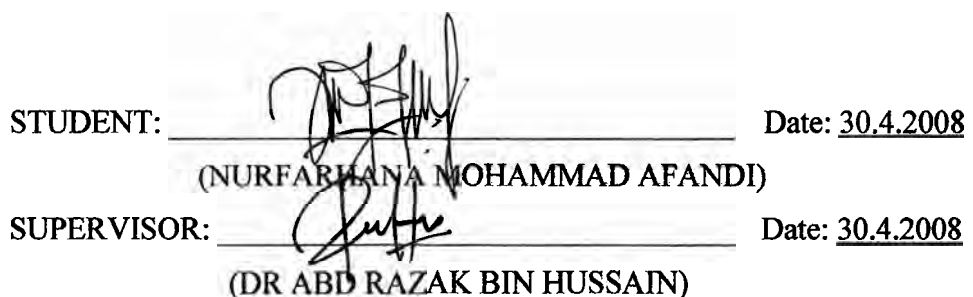 STUDENT: Date: 30.4.2008
(NURFARHANA MOHAMMAD AFANDI)
SUPERVISOR: Date: 30.4.2008
(DR ABD RAZAK BIN HUSSAIN)